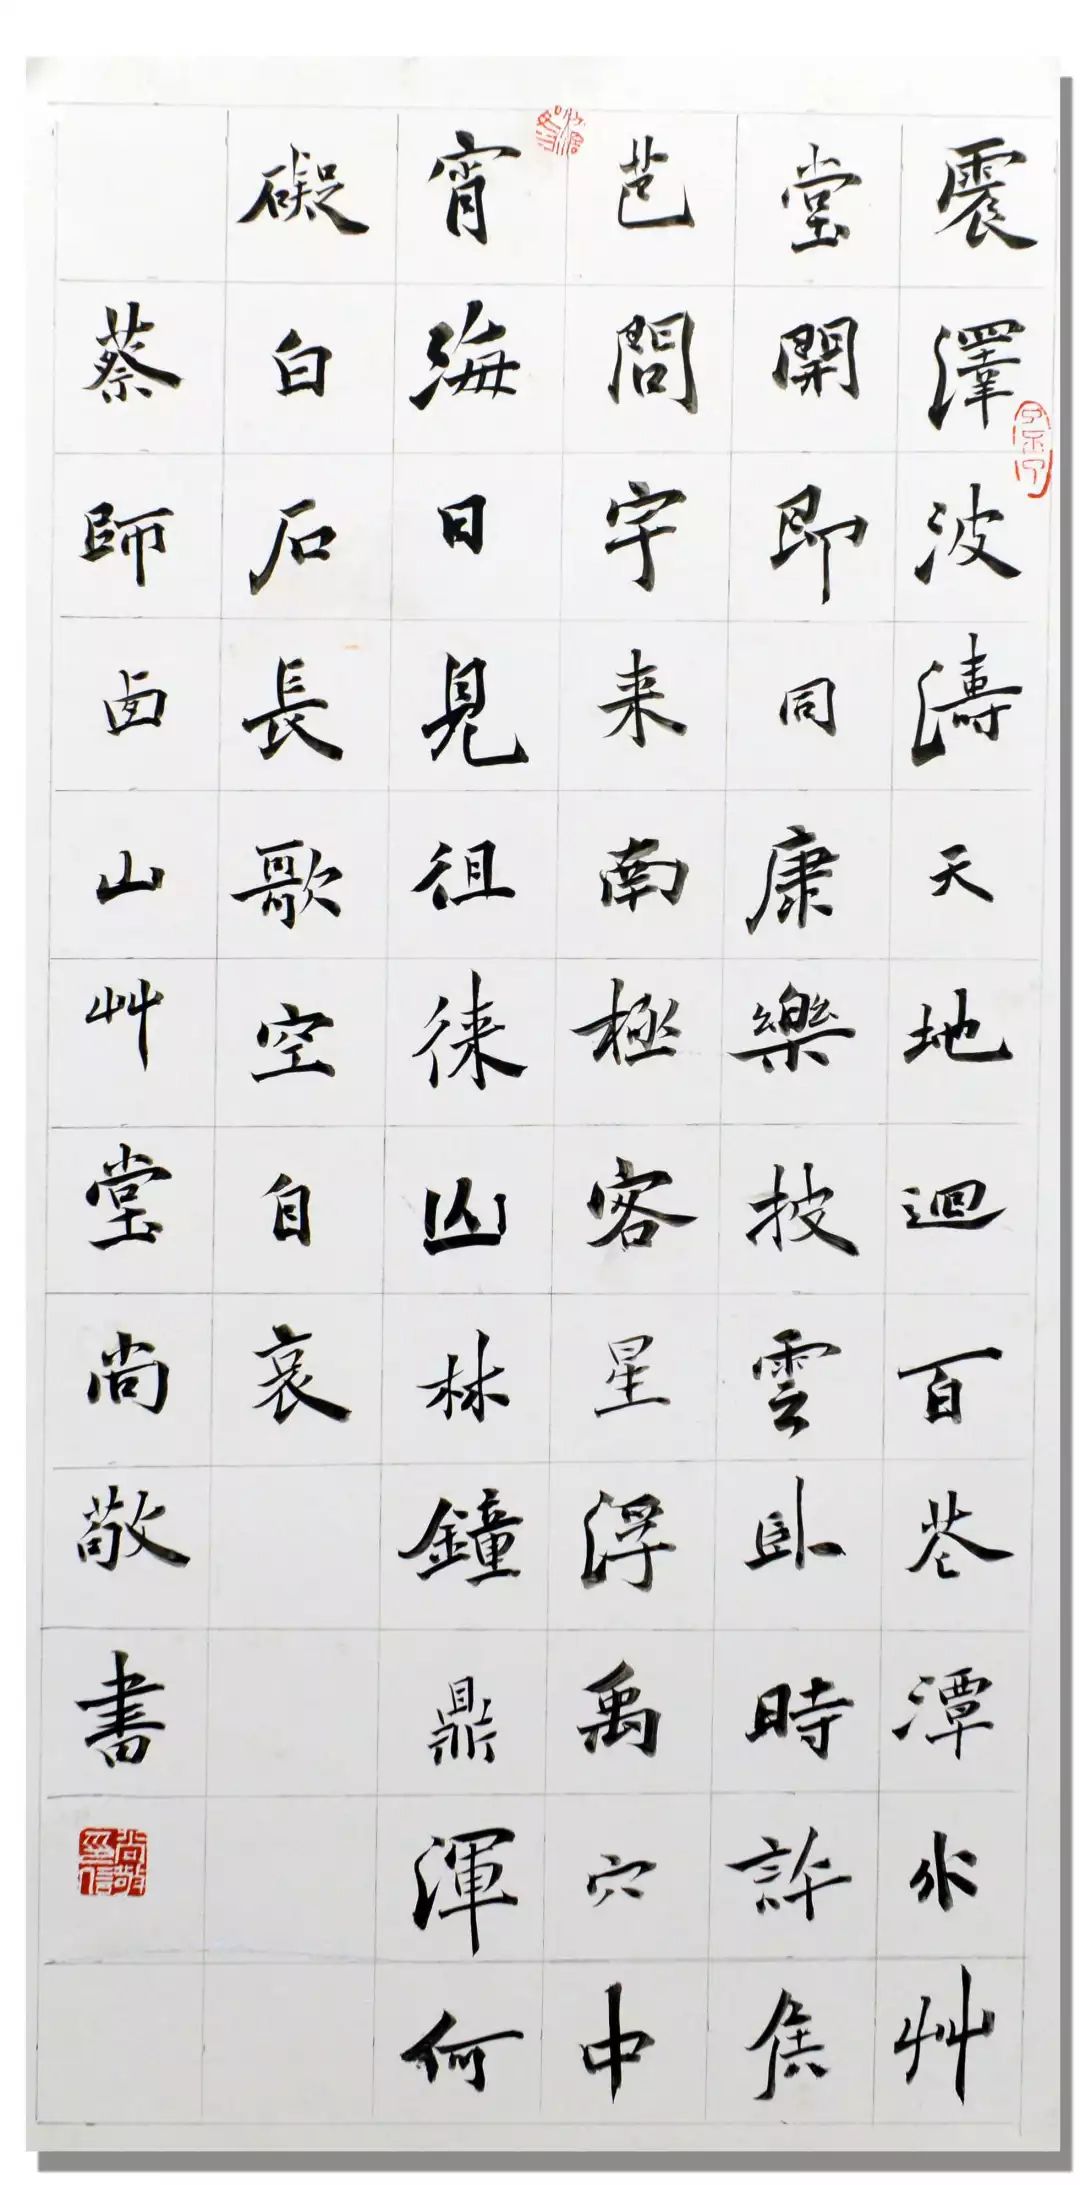 震澤波濤天地迴百花潭水艸
堂開即同康樂披雲卧時許侯
芭問字来南極客星浮禹穴中
宵海日見徂徕山林鐘鼎渾何
礙白石長歌空自哀
蔡師卥山艸堂尚敬書
尚敬印信